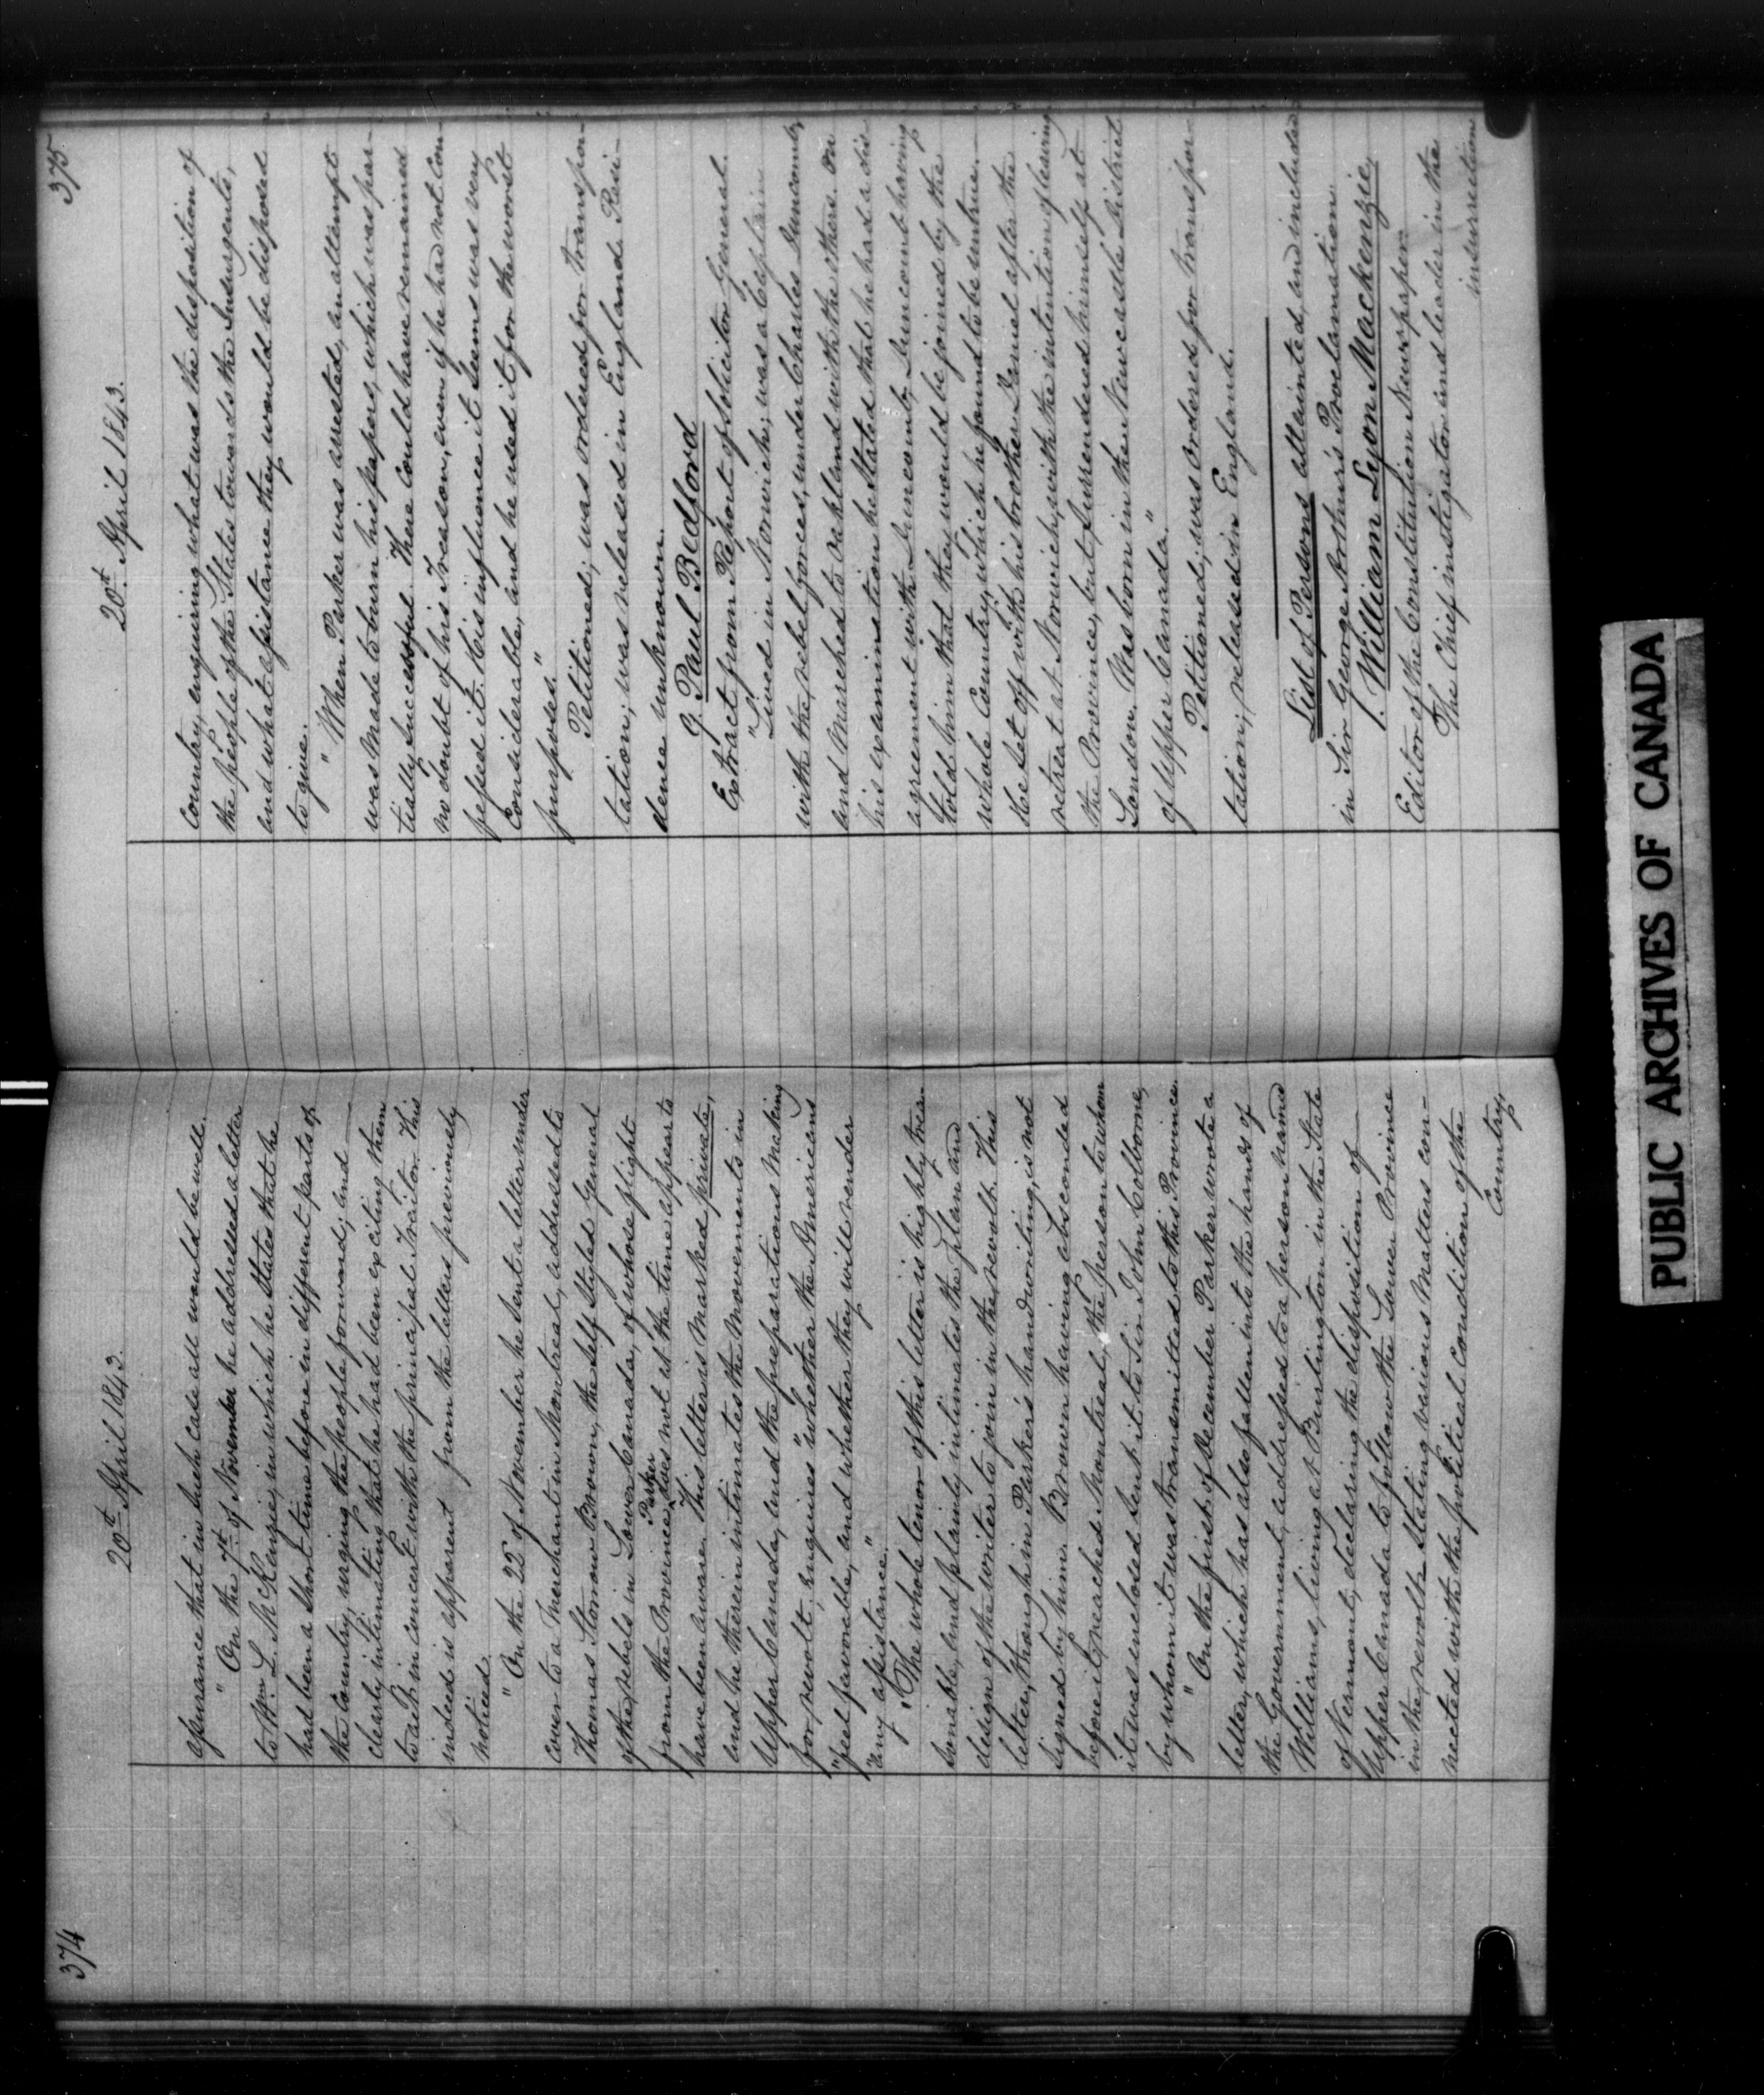 374
20th April 1843.
assurance that in such case all would be well.
" On the 7th of November he addressed a letter
to Wm. L. McKenzie, in which he states that he
had been a short time before in different parts of
the Country, urging the people forward; and
clearly intimating that he had been exciting them
to act in concert with the principal Traitor. This
indeed is apparent from the letters previously
noticed.
" On the 22d of November he sent a letter under
cover to a Merchant in Montreal, addressed to
Thomas Storrow Brown, the self styled General
of the rebels in Lower Canada, of whose flight
from the Province Parker does not at the time appear to
have been aware. This letter is marked private,
and he therein intimates the movements in
Upper Canada, and the preparations making
for revolt; enquires "whether the Americans
"feel favorable, and whether they will render
"any assistance."
" The whole tenor of this letter is highly trea-
sonable, and plainly intimates the plan and
design of the writer to join in the revolt. This
letter, though in Parker's handwriting, is not
signed by him. Brown having absconded
before it reached Montreal, the person to whom
it was enclosed sent it to Sir John Colborne,
by whom it was transmitted to this Province.
" On the first of December Parker wrote a
letter, which has also fallen into the hands of
the Government, addressed to a person named
Williams, living at Burlington in the State
of Vermont, declaring the disposition of
Upper Canada to follow the Lower Province
in the revolt stating various matters con-
nected with the political condition of the
Country,
375
20th April 1843.
Country, enquiring what was the disposition of
the people of the States towards the Insurgents,
and what assistance they would be disposed
to give.
" When Parker was arrested, an attempt
was made to burn his papers, which was par-
tially successful. There could have remained
no doubt of his Treason, even if he had not con-
fessed it. His influence it seems was very
considerable, and he used it for the worst
purposes."
Petitioned; was ordered for transpor-
tation; was released in England. Resi-
dence unknown.
9. Paul Bedford
Extract from Report of Solicitor General.
"Lived in Norwich; was a Captain
with the rebel forces, under Charles Duncombe,
and marched to Oakland with the others. On
his examination he stated that he had a dis
agreement with Duncombe, Duncombe having
told him that they would be joined by the
whole Country, which he found to be untrue.
He set off with his brother Daniel after the
retreat at Norwich, with the intention of leaving
the Province, but surrendered himself at
London. Was born in the Newcastle District
of Upper Canada."
Petitioned; was ordered for transpor-
tation; released in England.
List of Persons attainted, and included
in Sir George Arthur's Proclamation
1. William Lyon Mackenzie
Editor of the Constitution Newspaper
The Chief instigator and leader in the
insurrection
PUBLIC ARCHIVES OF CANADA